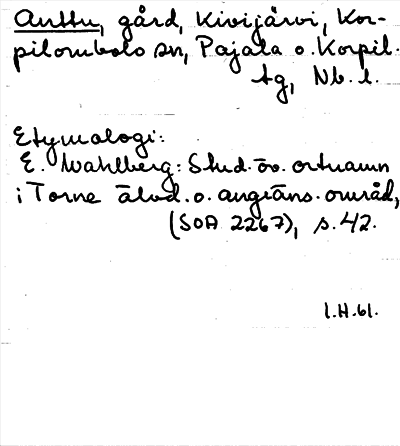 Anttu, gård, Kivijärvi, Kor-
pilombolo sn, Pajala o. Korpil.
tg, Nb. l.
Etymologi:
E. Wahlberg: Stud. öv. ortnamn
i Torne älvd. o. angräns. områd,
(SOA 2267), s. 42.
I.H.61.